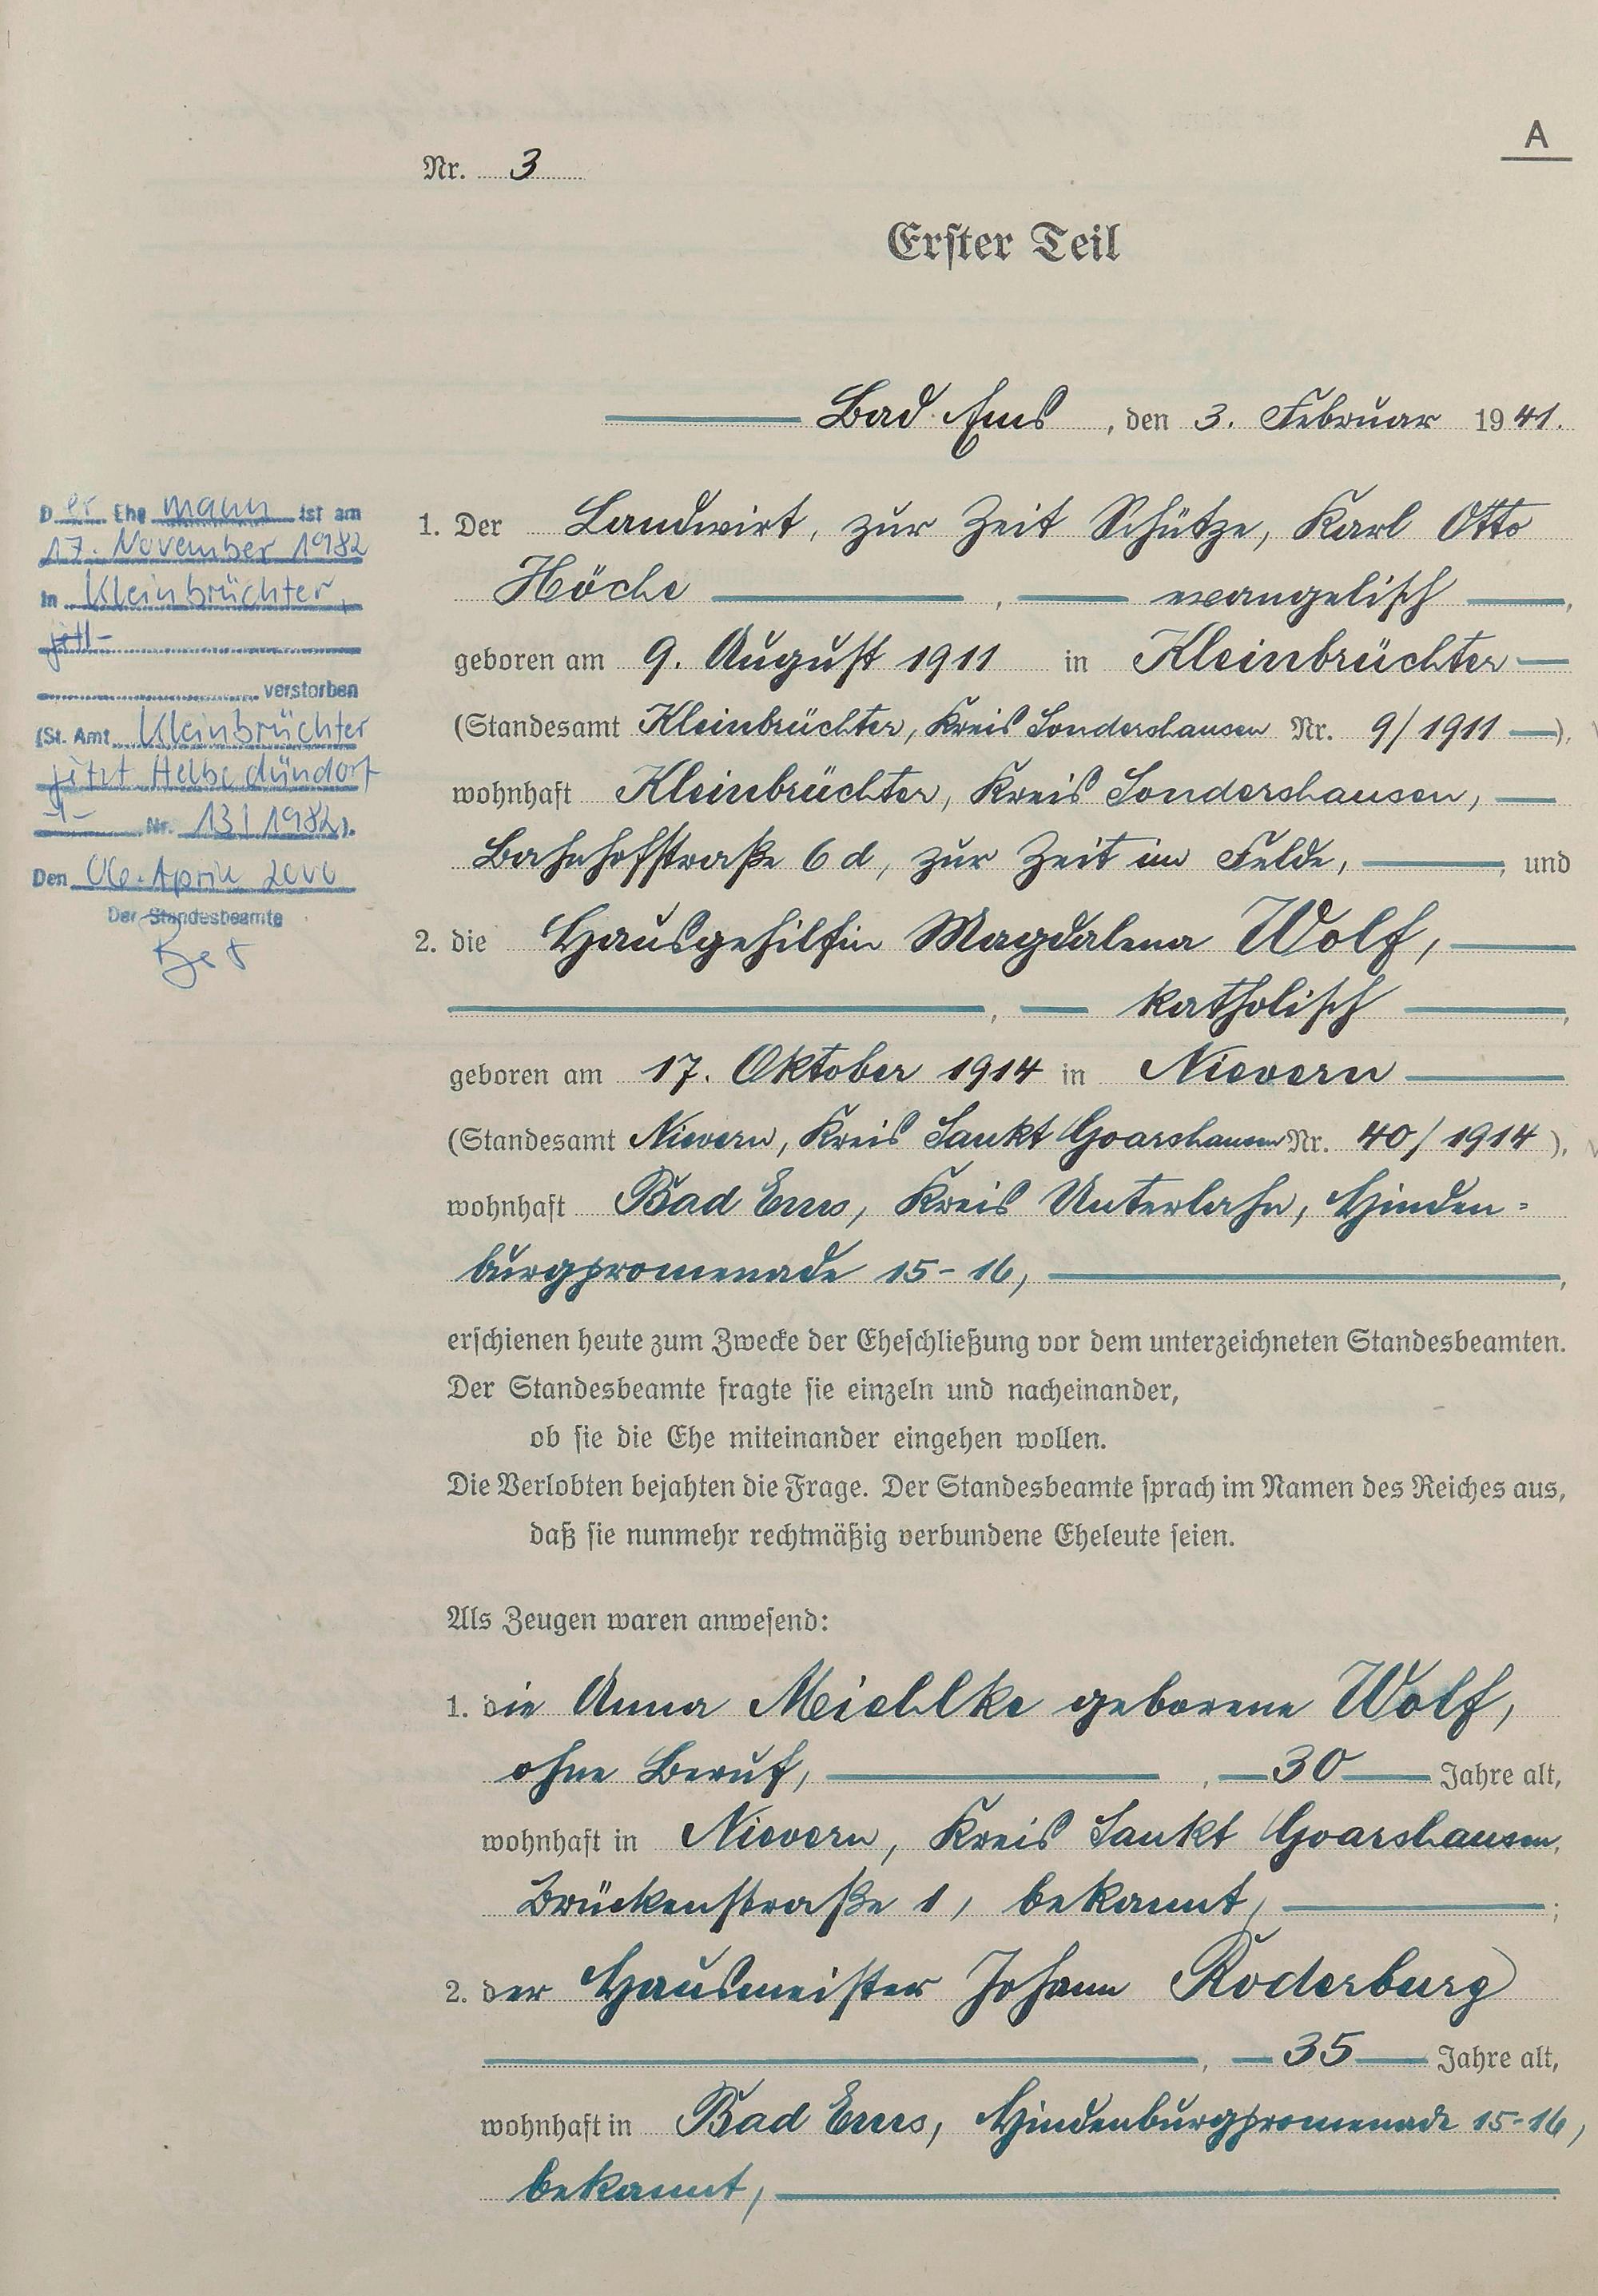 A
Nr. 3
Erster Teil
Bad Ems, den 3. Februar 1941.
1. Der Landwirt, zur Zeit Schütze, Karl Otto
Höche, evangelisch,
geboren am 9. August 1911 in Kleinbrüchter
(Standesamt Kleinbrüchter, Kreis Sondershausen Nr. 9/1911),
wohnhaft Kleinbrüchter, Kreis Sondershausen,
Bahnhofstraße 6 d, zur Zeit im Felde, und
2. die Hausgehilfin Magdalena Wolf,
, katholisch,
geboren am 17. Oktober 1914 in Nievern
(Standesamt Nievern, Kreis Sankt Goarshausen Nr. 40/1914),
wohnhaft Bad Ems, Kreis Unterlahn, Hinden-
burgpromenade 15-16,
erschienen heute zum Zwecke der Eheschließung vor dem unterzeichneten Standesbeamten.
Der Standesbeamte fragte sie einzeln und nacheinander,
ob sie die Ehe miteinander eingehen wollen.
Die Verlobten bejahten die Frage. Der Standesbeamte sprach im Namen des Reiches aus,
daß sie nunmehr rechtmäßig verbundene Eheleute seien.
Als Zeugen waren anwesend:
1. die Anna Miehlke geborene Wolf,
ohne Beruf, 30 Jahre alt,
wohnhaft in Nievern, Kreis Sankt Goarshausen,
Brückenstraße 1, bekannt,;
2. der Hausmeister Johann Roderburg
, 35 Jahre alt,
wohnhaft in Bad Ems, Hindenburgpromenade 15-16,
bekannt,
Der Ehemann ist am
17. November 1982
in Kleinbrüchter,
verstorben
(St. Amt Kleinbrüchter
jetzt Helbedündorf
Nr. 13/1982).
Den 06. April 2000
Der Standesbeamte